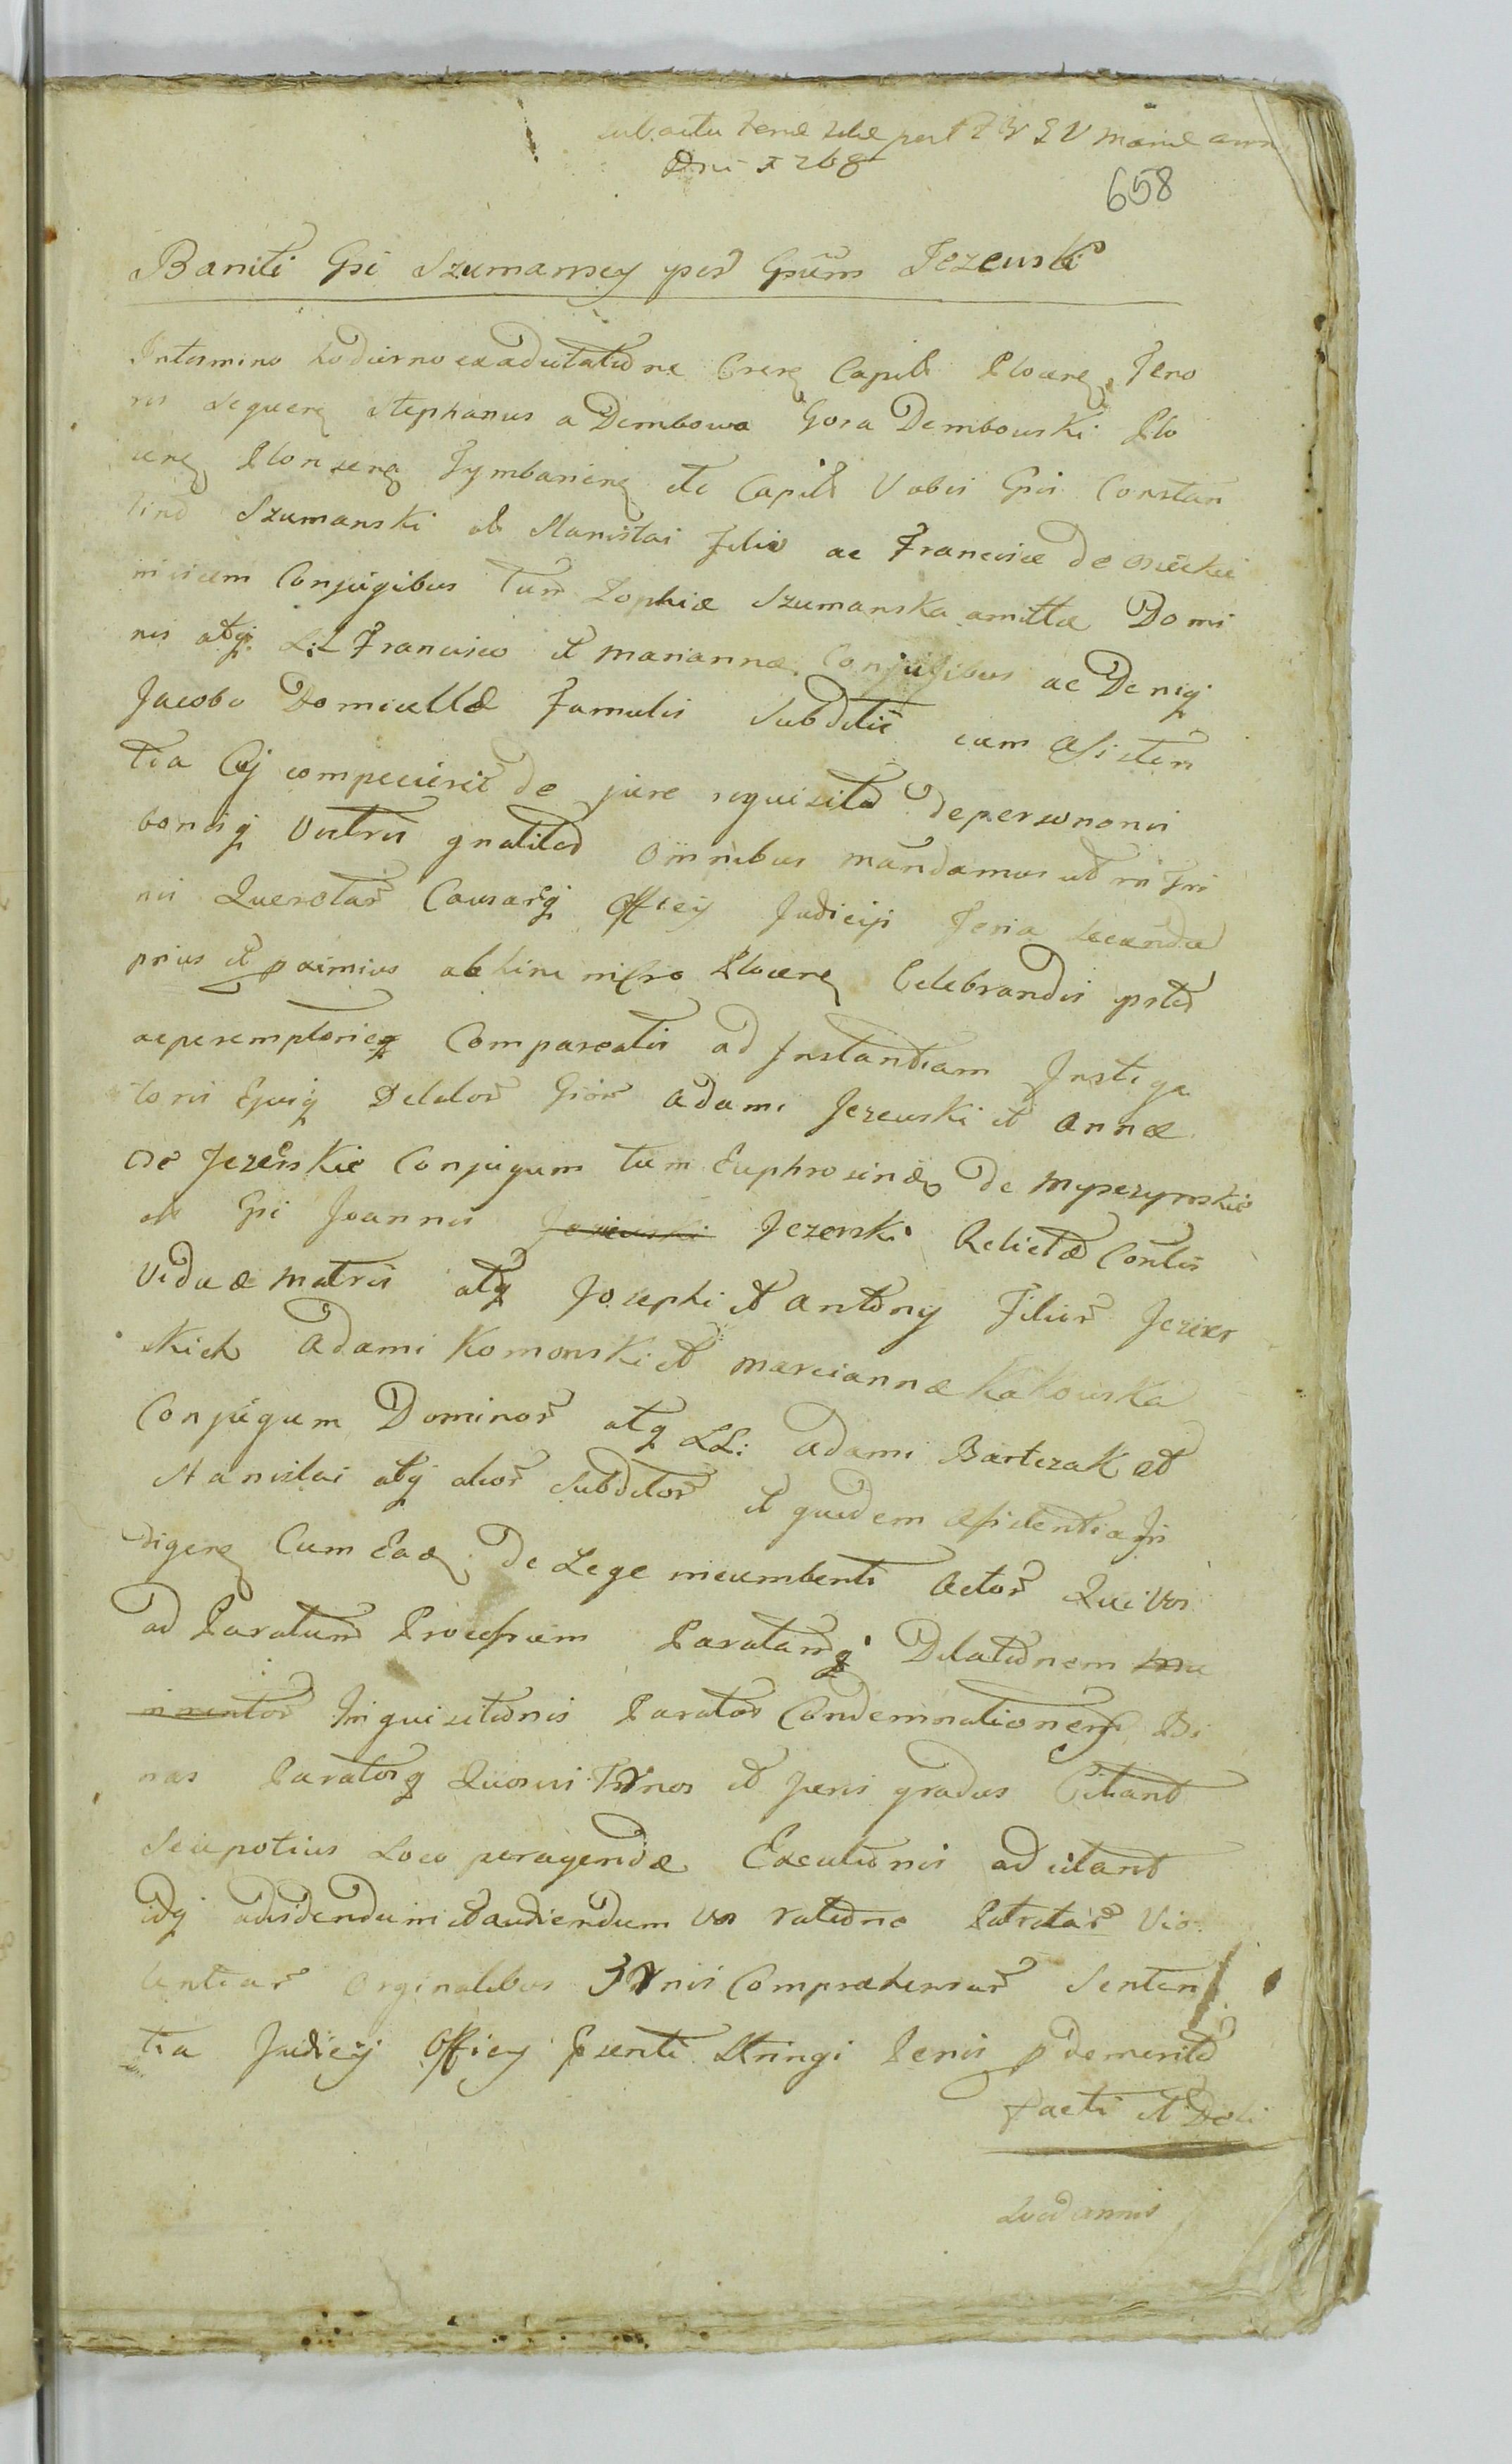 sub actu Feriæ 2dæ post F V S V Mariæ ann
Dni 1768
658
Baniti Gsi Szumanscy per Gsum Jezewski
In termino hodierno ex adcitatione Cren Capitli Plocen Teno
ris sequen Stephanus a Dembowa Gora Dembowski Plo
cen Plonscen etc Capils Vobis Gsis Constan
tino Szumanski ols Stanislai filio ac Francisca de
invicem Conjugibus tum Zophiæ Szumanska amittæ Domi
nis atq LL Francisco et Mariannæ Conjugibus ac Deniq
Jacobo Domicellæ famulis Subditis cum Assisten
tia Cuj compecierit de jure requisita de personis
bonisq Vestris gnaliter omnibus mandamus ut in Tri
nis Querelar Causarq Officij Judicijs Feria secunda
prius et proximius ab hinc Plocen Celebrandis psler
ac peremptorieq Compareatis ad Instantiam Instiga
toris Ejusq Delator Gsor Adami Jezewski et Annæ
de Jezewskie Conjugum tum Euphrosinæ de Myszczynskie
ols Gsi Joannis Jeziewski Jezewski Relictæ Contis
Viduæ Matris atq Josephi et Antony Filior Jezier
skich Adami Komorski et Mariannæ Kakowska
Conjugum Dominor atq LL: Adami Bartczak et
Stanislai atq alior Subditor et quidem Assistentia In
digen Cum Eadem de Lege incumbenti Actor Qui Vos
ad Paratum Processum Paratamq Delationem
Inquisitionis Paratas Condemnationem Bi
nas Paratosq Quosvis Trnos et Juris gradus Citant
Seu potius Loco peragendæ Executionis adcitant
idq ad videndum et audiendum Vos ratione Patratar Vio
lentiar Orginalibus Trnis Compræhensar Senten
tia Judicij Officij psenti Stringi Penis p demerito
facti et Doli
Luendamnis